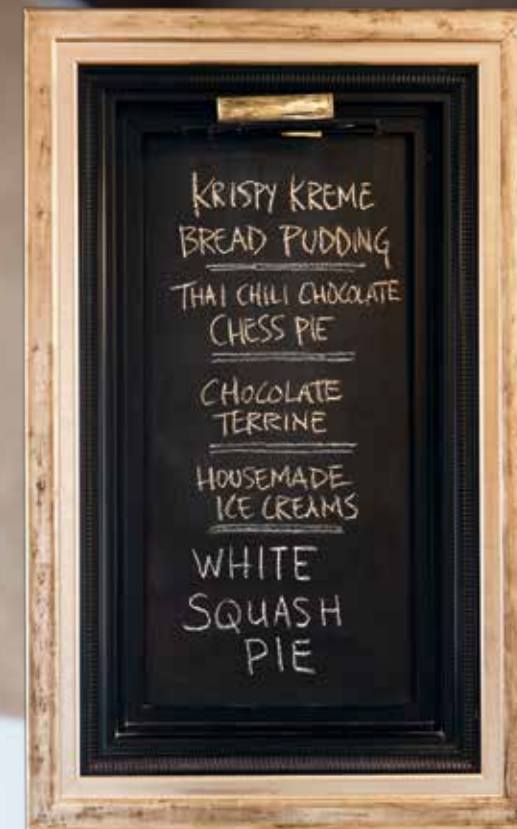 KRISPY KREME
BREAD PUDDING
THAI CHILI CHOCOLATE
CHESS PIE
CHOCOLATE
TERRINE
HOUSEMADE
ICE CREAMS
WHITE
SQUASH
PIE